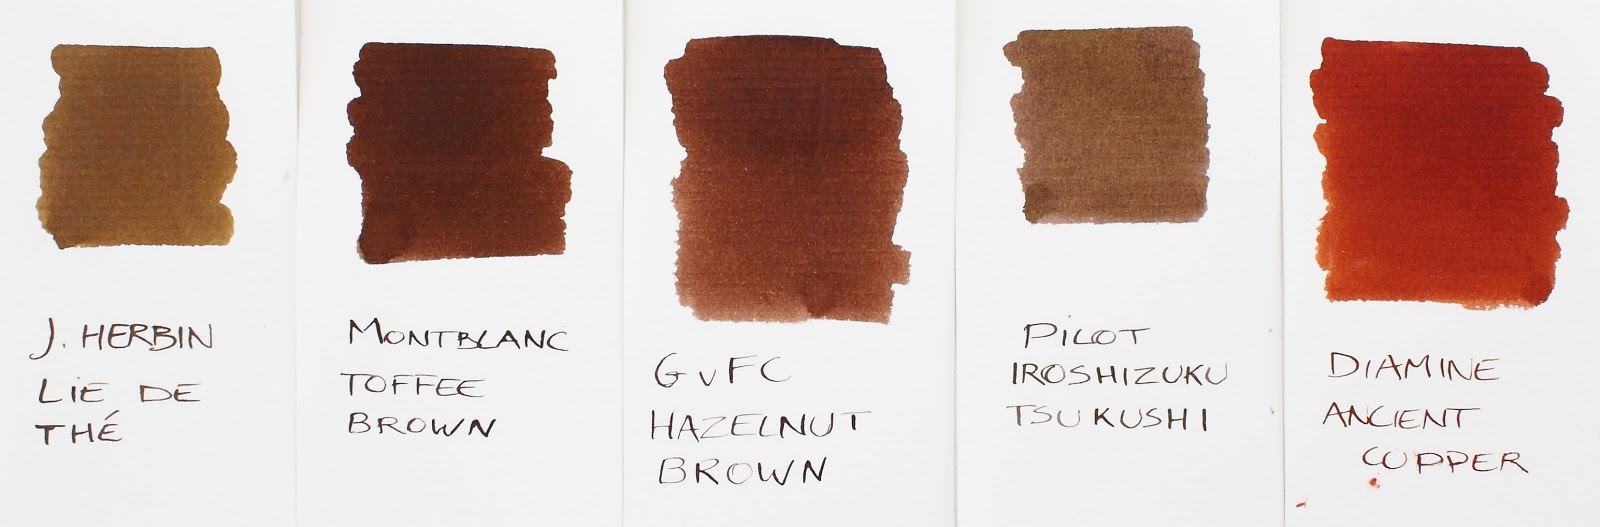 J. HERBIN
LIE DE
THÉ
MONTBLANC
TOFFEE
BROWN
GvFC
HAZELNUT
BROWN
PILOT
IROSHIZUKU
TSUKUSHI
DIAMINE
ANCIENT
COPPER